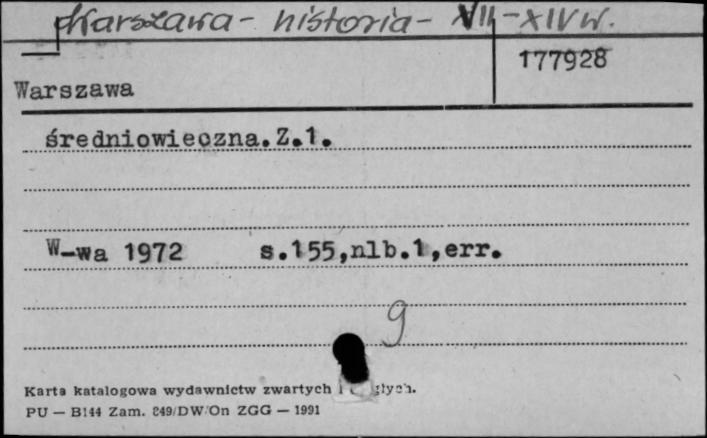 Warszawa - historia - XII - XIV w.
177928
Warszawa
średniowieczna.Z.1.
W-wa 1972 s.155,nlb.1,err.
9
Karta katalogowa wydawnictw zwartych
PU — B144 Zam. 849/DW/On ZGG — 1991